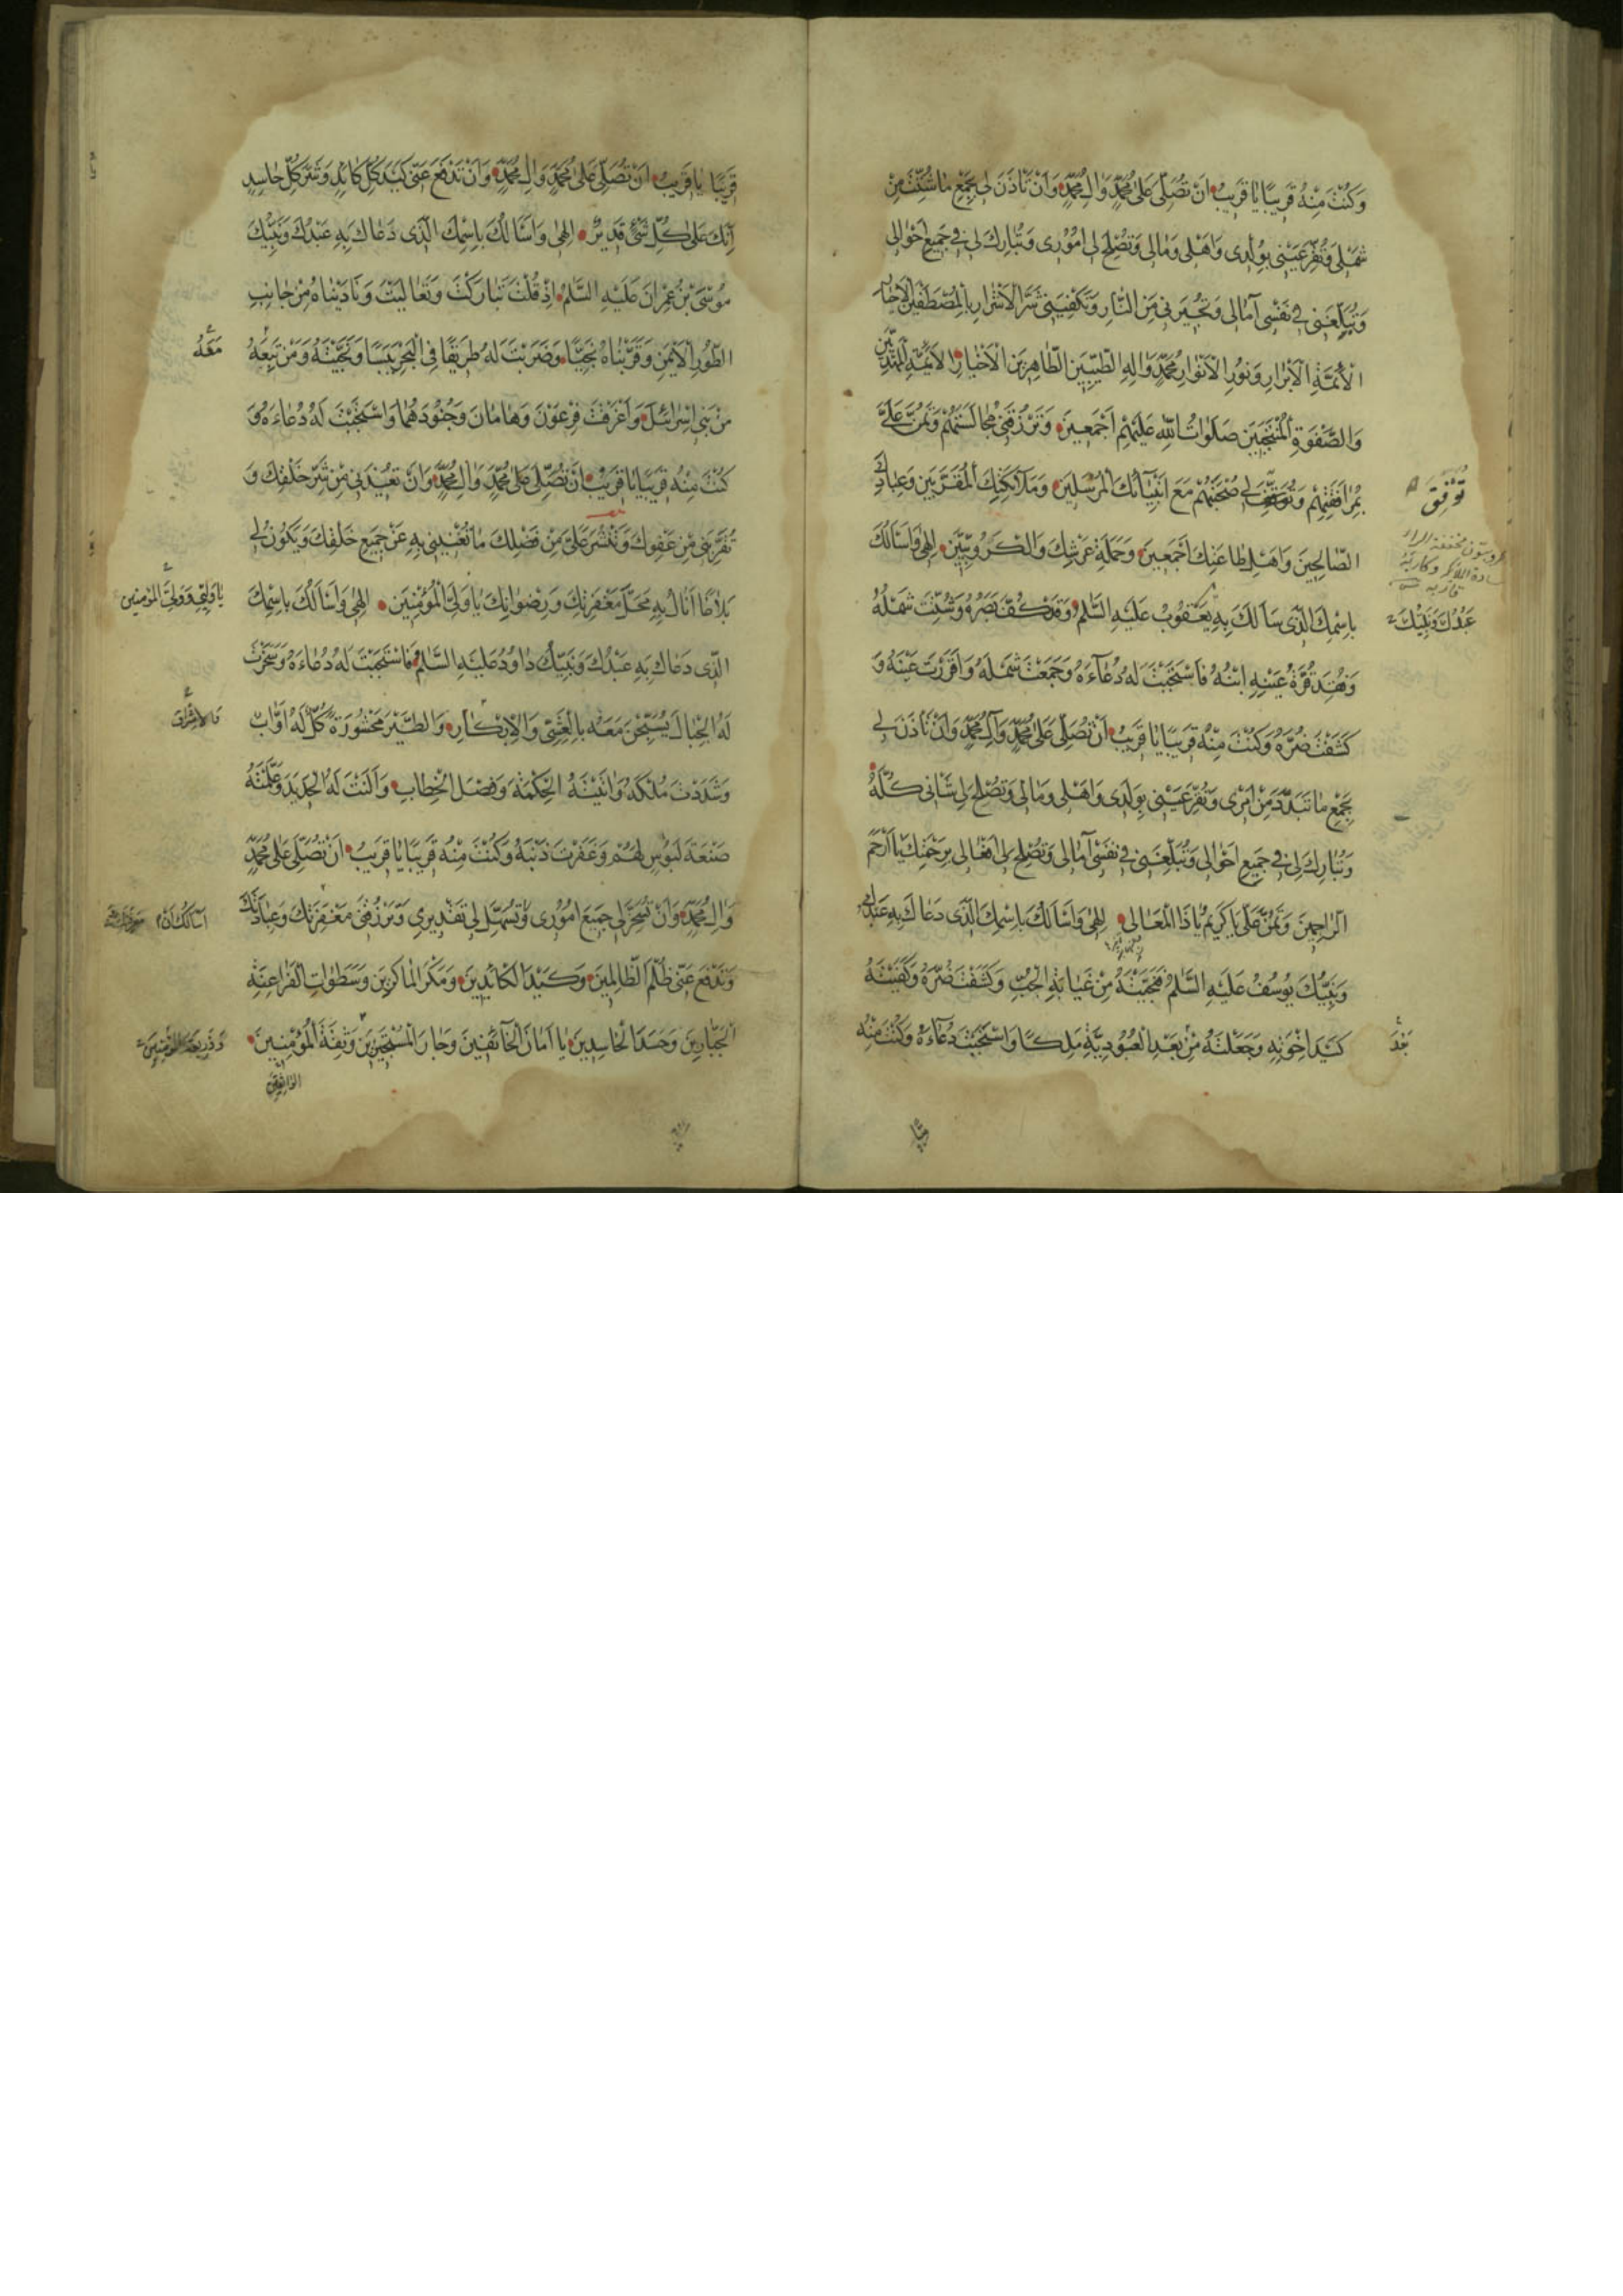 وَكُنْتَ مِنْهُ قَرِيبًا يَا قَرِيبُ اَنْ تُصَلِّىَ عَلىٰ مُحَمَّدٍ وَالِ مُحَمَّدٍ وَاَنْ تَاْذَنَ لى بِجَمْعِ مَا شُتِّتَ مِنْ
شَمْلى وَتُقِرَّ عَيْنى بِوُلْدى وَاَهْلى وَمٰالى وَتُصْلِحَ لى اُمُورى وَتُبٰارِكَ لى فى جَميعِ اَحْوٰالى
وَتُبَلِّغَنى فى نَفْسى آمٰالى وَتُجيرَنى مِنَ النّٰارِ وَتَكْفِيَنى شَرَّ الْاَشْرٰارِ بِالْمُصْطَفَيْنَ الْاَخْيٰارِ
الْاَئِمَّةِ الْاَبْرٰارِ وَنُورِ الْاَنْوٰارِ مُحَمَّدٍ وَالِهِ الطَّيِّبينَ الطّٰاهِرينَ الْاَخْيٰارِ الْاَئِمَّةِ الْمَهْدِيّينَ
وَالصَّفْوَةِ الْمُنْتَجَبينَ صَلَوٰاتُ اللّٰهِ عَلَيْهِمْ اَجْمَعينَ وَتَرْزُقَنى مُجٰالَسَتَهُمْ وَتَمُنَّ عَلَىَّ
بِمُرٰافَقَتِهِمْ وَتُوَفِّقَ لى صُحْبَتَهُمْ مَعَ اَنْبِيٰآئِكَ الْمُرْسَلينَ وَمَلٰآئِكَتِكَ الْمُقَرَّبينَ وَعِبٰادِكَ
تُوَفِّقَ
الصّٰالِحينَ وَاَهْلِ طٰاعَتِكَ اَجْمَعينَ وَحَمَلَةِ عَرْشِكَ وَالْكَرُوبِيّينَ اِلٰهى وَاَسْاَلُكَ
بِاسْمِكَ الَّذى سَاَلَكَ بِهِ يَعْقُوبُ عَلَيْهِ السَّلٰمُ وَقَدْ كُفَّ بَصَرُهُ وَشُتِّتَ شَمْلُهُ
عَبْدُكَ وَنَبِيُّكَ
وَفُقِدَ قُرَّةُ عَيْنِهِ ابْنُهُ فَاسْتَجَبْتَ لَهُ دُعٰآءَهُ وَجَمَعْتَ شَمْلَهُ وَاَقْرَرْتَ عَيْنَهُ وَ
كَشَفْتَ ضُرَّهُ وَكُنْتَ مِنْهُ قَرِيبًا يٰا قَرِيبُ اَنْ تُصَلِّىَ عَلىٰ مُحَمَّدٍ وَآلِ مُحَمَّدٍ وَاَنْ تَاْذَنَ لى
بِجَمْعِ مٰا تَبَدَّدَ مِنْ اَمْرى وَتُقِرَّ عَيْنى بِوَلَدى وَاَهْلى وَمٰالى وَتُصْلِحَ لى شَاْنى كُلَّهُ
وَتُبٰارِكَ لى فى جَميعِ اَحْوٰالى وَتُبَلِّغَنى فى نَفْسى آمٰالى وَتُصْلِحَ لى اَفْعٰالى بِرَحْمَتِكَ يٰا اَرْحَمَ
الرّٰاحِمينَ وَتَمُنَّ عَلَىَّ يٰا كَريمُ يٰا ذَا الْمَعٰالى اِلٰهى وَاَسْاَلُكَ بِاسْمِكَ الَّذى دَعٰاكَ بِهِ عَبْدُكَ
وَنَبِيُّكَ يُوسُفُ عَلَيْهِ السَّلٰمُ فَنَجَّيْتَهُ مِنْ غَيٰابَةِ الْجُبِّ وَكَشَفْتَ ضُرَّهُ وَكَفَيْتَهُ
كَيْدَ اِخْوَتِهِ وَجَعَلْتَهُ مِنْ بَعْدِ الْعُبُودِيَّةِ مَلِكًا وَاسْتَجَبْتَ دُعٰآءَهُ وَكُنْتَ مِنْهُ
بَعْدَ
قَرِيبًا يٰا قَرِيبُ اَنْ تُصَلِّىَ عَلىٰ مُحَمَّدٍ وَالِ مُحَمَّدٍ وَاَنْ تَدْفَعَ عَنّى كَيْدَ كُلِّ كٰائِدٍ وَشَرَّ كُلِّ حٰاسِدٍ
اِنَّكَ عَلىٰ كُلِّ شَىْءٍ قَديرٌ اِلٰهى وَاَسْاَلُكَ بِاسْمِكَ الَّذى دَعٰاكَ بِهِ عَبْدُكَ وَنَبِيُّكَ
مُوسَى بْنُ عِمْرٰانَ عَلَيْهِ السَّلٰمُ اِذْ قُلْتَ تَبٰارَكْتَ وَتَعٰالَيْتَ وَنٰادَيْنٰاهُ مِنْ جٰانِبِ
الطُّورِ الْاَيْمَنِ وَقَرَّبْنٰاهُ نَجِيًّا وَضَرَبْتَ لَهُ طَريقًا فِى الْبَحْرِ يَبَسًا وَنَجَّيْتَهُ وَمَنْ تَبِعَهُ
مَعَهُ
مِنْ بَنى اِسْرٰائيلَ وَاَغْرَقْتَ فِرْعَوْنَ وَهٰامٰانَ وَجُنُودَهُمٰا وَاسْتَجَبْتَ لَهُ دُعٰاءَهُ وَ
كُنْتَ مِنْهُ قَرِيبًا يٰا قَرِيبُ اَنْ تُصَلِّىَ عَلىٰ مُحَمَّدٍ وَالِ مُحَمَّدٍ وَاَنْ تُعيذَنى مِنْ شَرِّ خَلْقِكَ وَ
تُقَرِّبَنى مِنْ عَفْوِكَ وَتَنْشُرَ عَلَىَّ مِنْ فَضْلِكَ مٰا تُغْنينى بِهِ عَنْ جَميعِ خَلْقِكَ وَيَكُونُ لى
بَلٰاغًا اَنٰالُ بِهِ مَحَلَّ مَغْفِرَتِكَ وَرِضْوٰانِكَ يٰا وَلِىَّ الْمُؤْمِنينَ اِلٰهى وَاَسْاَلُكَ بِاسْمِكَ
يٰا وَلِيّى وَوَلِىَّ الْمُؤْمِنينَ
الَّذى دَعٰاكَ بِهِ عَبْدُكَ وَنَبِيُّكَ دٰاوُدُ عَلَيْهِ السَّلٰمُ فَاسْتَجَبْتَ لَهُ دُعٰاءَهُ وَسَخَّرْتَ
لَهُ الْجِبٰالَ يُسَبِّحْنَ مَعَهُ بِالْعَشِىِّ وَالْاِبْكٰارِ وَالطَّيْرَ مَحْشُورَةً كُلٌّ لَهُ اَوّٰابٌ
وَالْاِشْرٰاقِ
وَشَدَدْتَ مُلْكَهُ وَاٰتَيْتَهُ الْحِكْمَةَ وَفَصْلَ الْخِطٰابِ وَاَلَنْتَ لَهُ الْحَديدَ وَعَلَّمْتَهُ
صَنْعَةَ لَبُوسٍ لَهُمْ وَغَفَرْتَ ذَنْبَهُ وَكُنْتَ مِنْهُ قَرِيبًا يٰا قَرِيبُ اَنْ تُصَلِّىَ عَلىٰ مُحَمَّدٍ
وَالِ مُحَمَّدٍ وَاَنْ تُسَخِّرَ لى جَميعَ اُمُورى وَتُسَهِّلَ لى تَقْديرى وَتَرْزُقَنى مَغْفِرَتَكَ وَعِبٰادَتَكَ
اَسْاَلُكَ اَنْ
وَتَدْفَعَ عَنّى ظُلْمَ الظّٰالِمينَ وَكَيْدَ الْكٰائِدينَ وَمَكْرَ الْمٰاكِرينَ وَسَطَوٰاتِ الْفَرٰاعِنَةِ
الْجَبّٰارينَ وَحَسَدَ الْحٰاسِدينَ يٰا اَمٰانَ الْخٰآئِفينَ وَجٰارَ الْمُسْتَجيرينَ وَثِقَةَ الْمُؤْمِنينَ
الوٰاثِقينَ